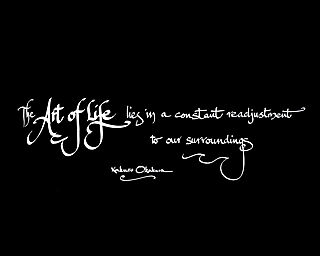 The Art of Life lies in a constant readjustment
to our surroundings
Kakuzo Okakura